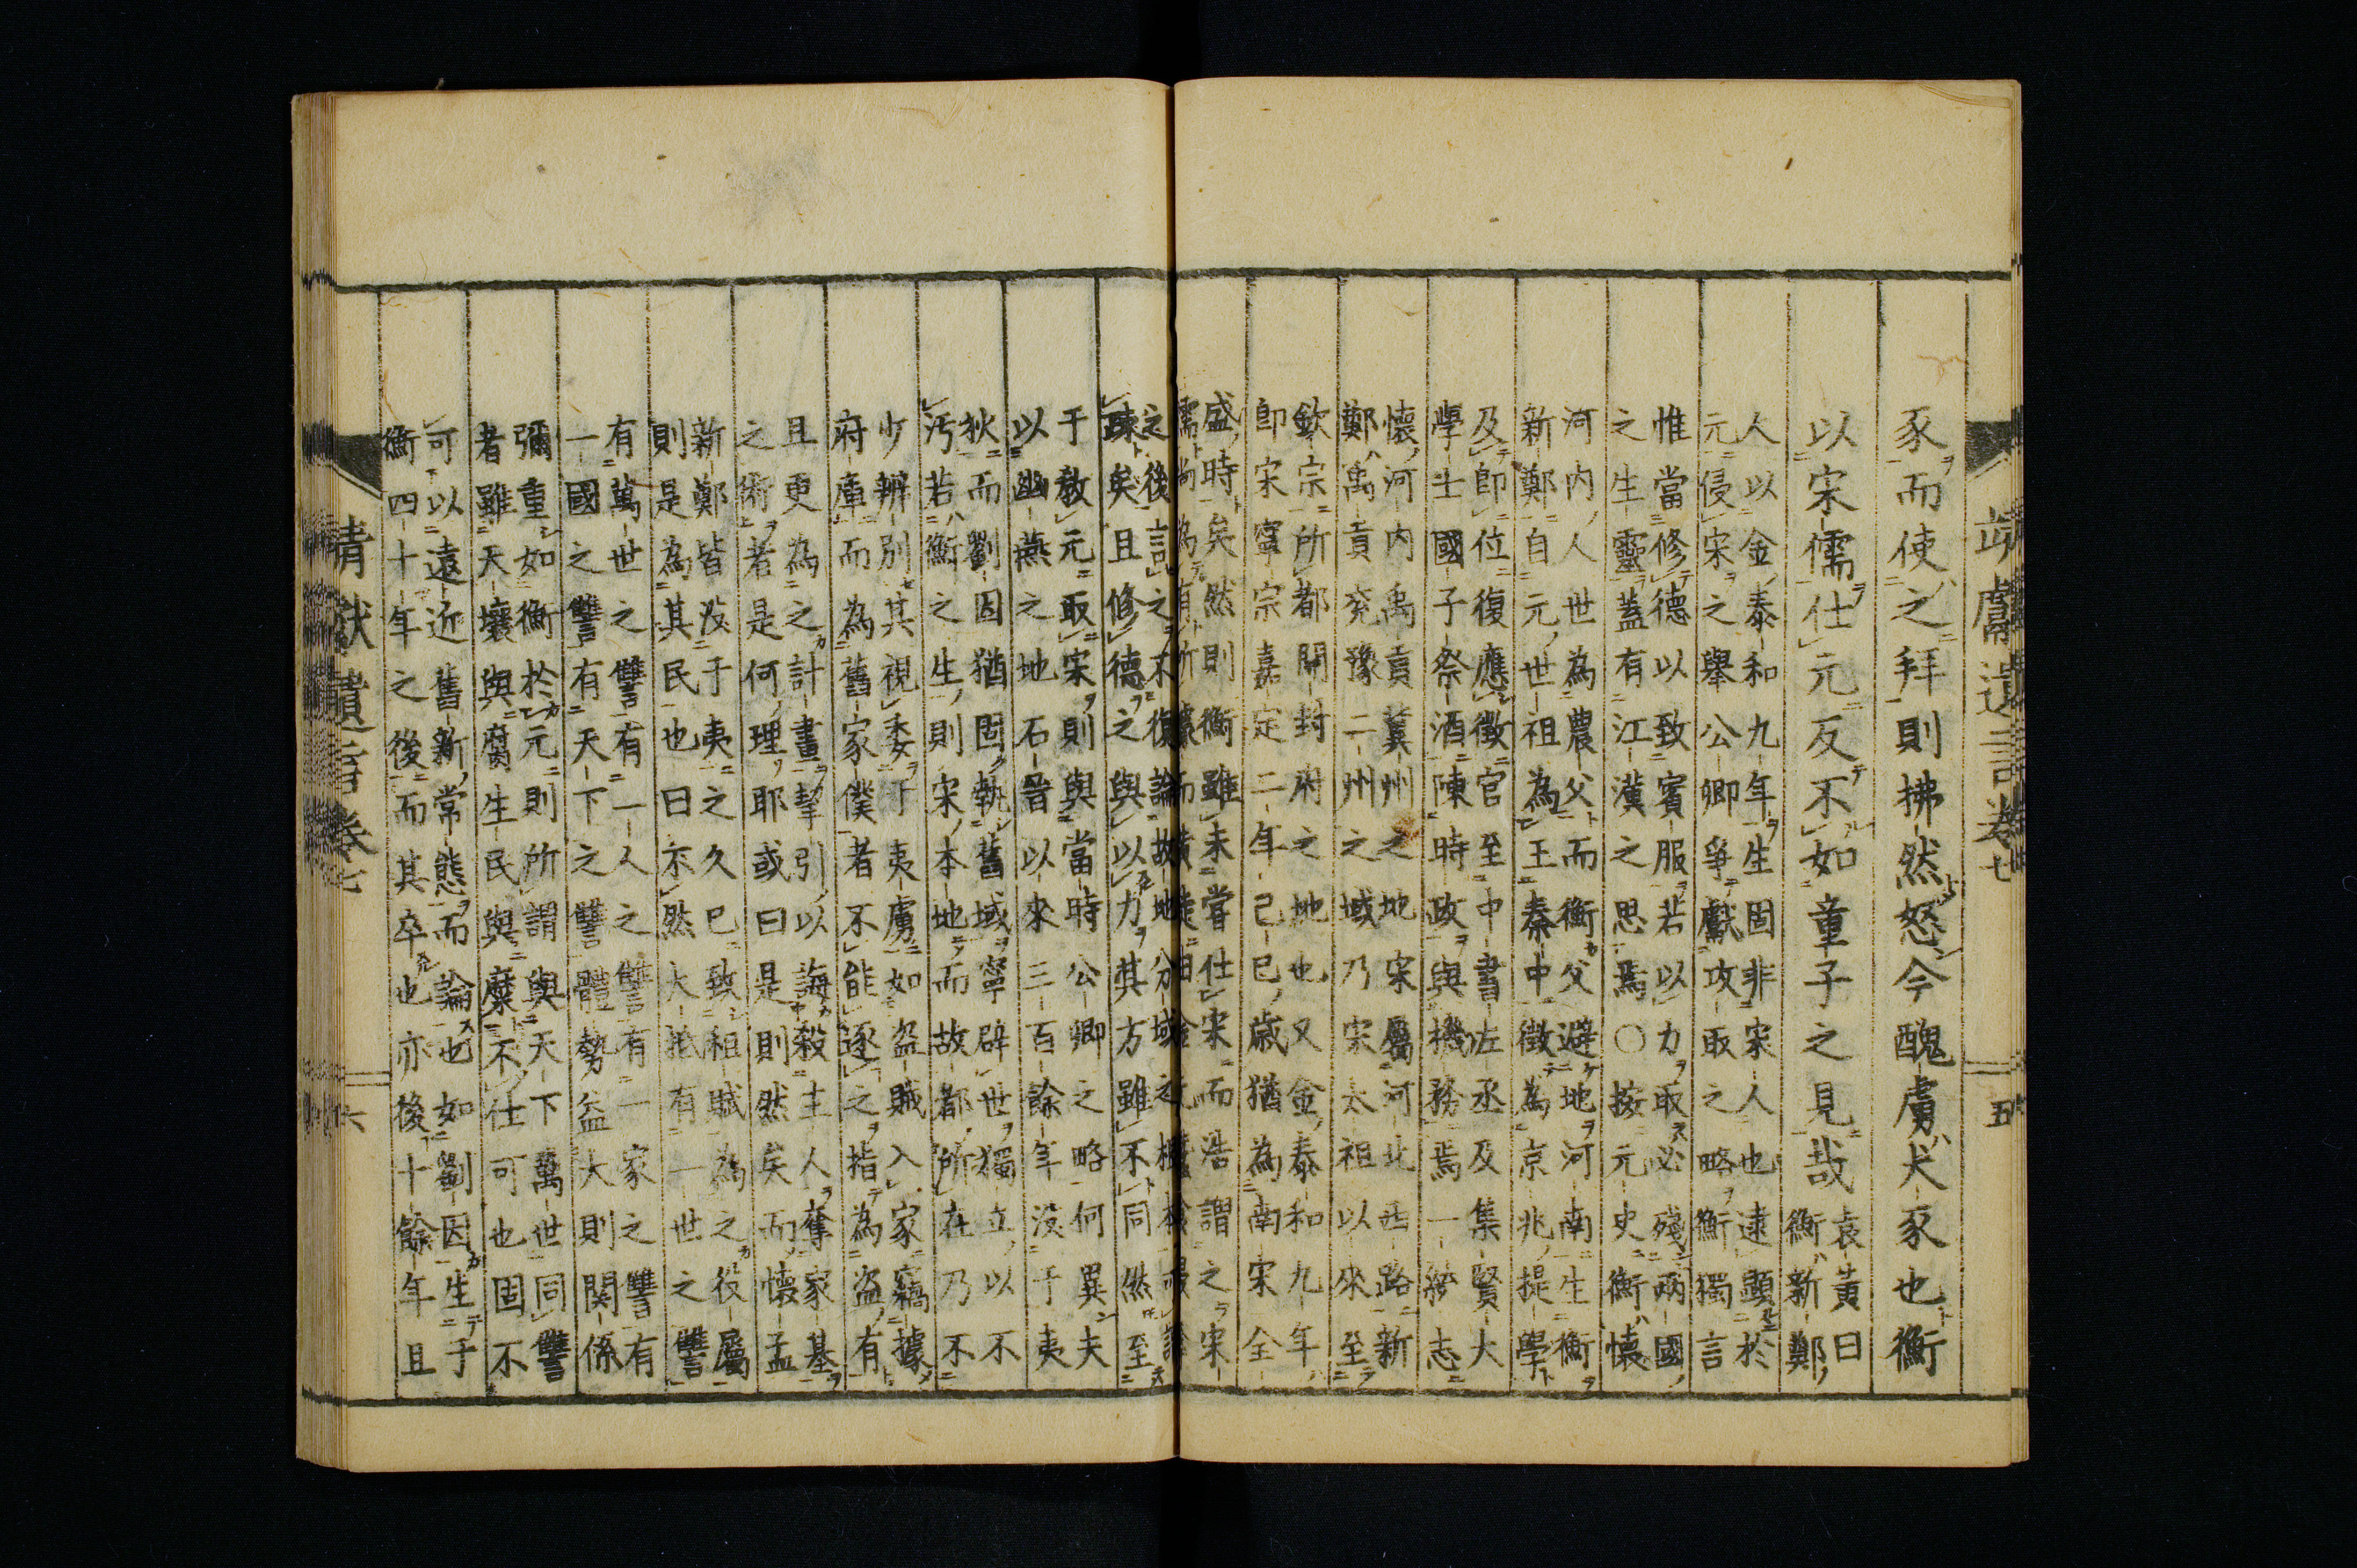 豕而使之拜則拂然怒今醜虜犬豕也衡
以宋儒仕元反不如童子之見哉
袁黄曰
衡新鄭
人以金泰和九年生固非宋人也逮顕於
元侵宋之舉公卿爭獻攻取之略衡獨言
惟當修德以致賓服若以力取必殘兩國
之生靈蓋有江漢之思焉○按元史衡懷
河内人世為農父而衡父避地河南生衡
新鄭自元世祖為王秦中徴為京兆提學
及即位復應徴官至中書左丞及集賢大
學士國子祭酒陳時政與機務焉一統志
懷河内禹貢冀州之地宋屬河北西路新
鄭禹貢兗豫二州之域乃宋太祖以來至
欽宗所都開封府之地也又金泰和九年
即宋寧宗嘉定二年己巳歲猶為南宋全
盛時矣然則衡雖未嘗仕宋而浩謂之宋
儒尚為有所
之後言之不復論故地分域之
疎矣且修德之與以力其方雖不同然至
于教元取宋則與當時公卿之略何異夫
以幽燕之地石晉以來三百餘年没于夷
狄而劉因猶固執舊域寧辟世獨立以不
汚若衡之生則宋本地而故都所在乃不
少辨別其視委于夷虜如盜賊入家竊據
府庫而為舊家僕者不能逐之指為盜有
且更為之計畫挈引以誨殺主人奪家基
之術者是何理耶或曰是則然矣而懷孟
新鄭皆没于夷之久已致租賦為之役屬
則是為其民也曰不然大抵有一世之讐
有萬世之讐有一人之讐有一家之讐有
一國之讐有天下之讐體勢益大則関係
彌重如衡於元則所謂與天下萬世同讐
者雖天壤與腐生民與糜不仕可也固不
可以遠近舊新常態而論也如劉因生于
衡四十年之後而其卒也亦後十餘年且
靖献遺言卷七
五
六